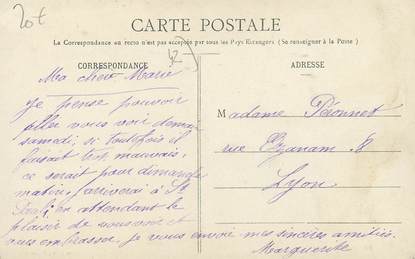 20f
CARTE POSTALE
La Correspondance au recto n'est pas acceptée par tous les Pays Etrangers (Se renseigner à la Poste)
CORRESPONDANCE
ADRESSE
Ma chère Marie
Je pense pouvoir
aller vous voir demain
samedi; si toutefois il
faisait très mauvais,
ce serait pour dimanche
matin. J'arriverai à St
en attendant le
plaisir de vous voir et
vous embrasser. Je vous envoie mes sincères amitiés.
Marguerite
Madame Péronnet
rue Ozanam 8
Lyon